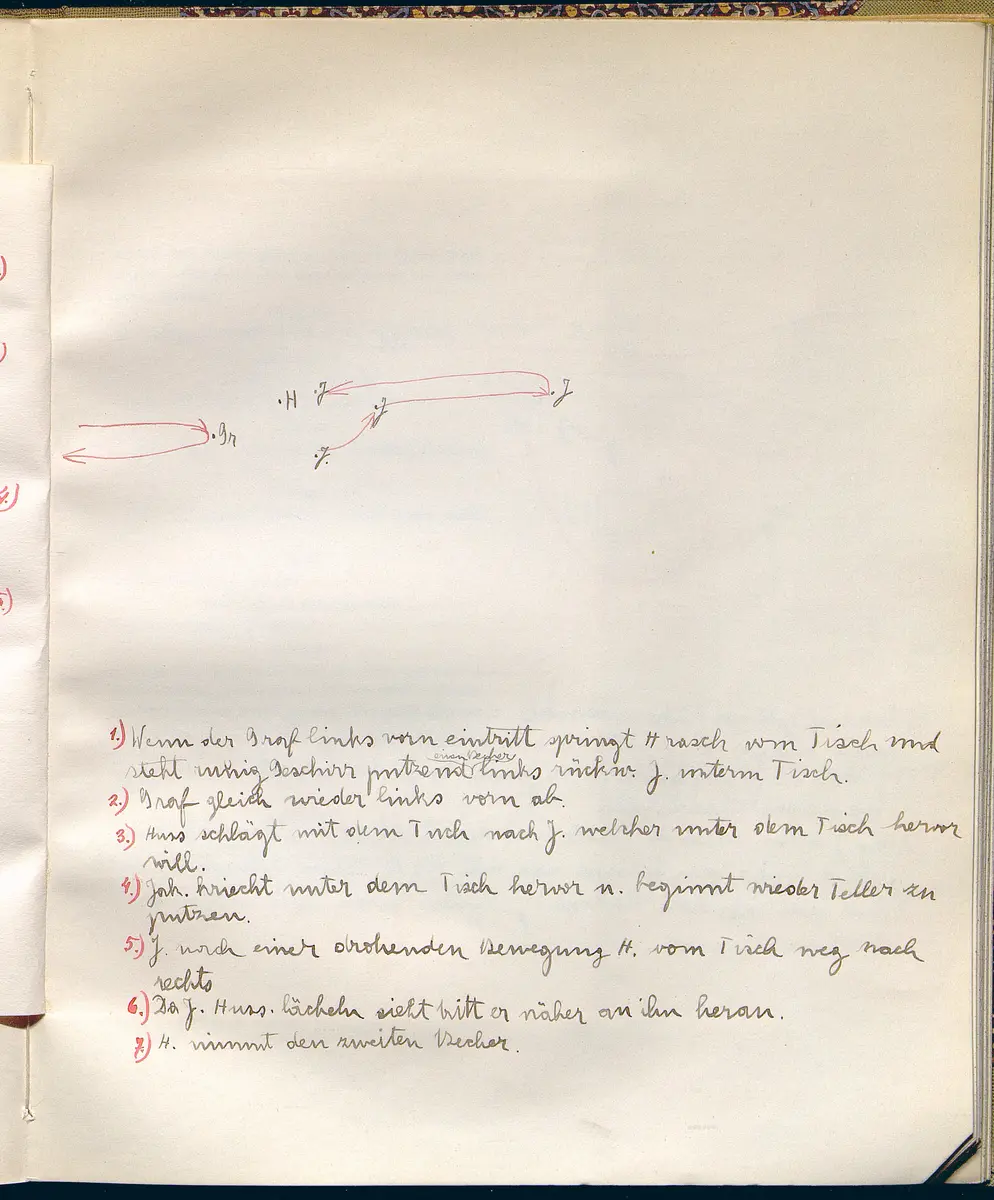 )
)
4.)
5)
.H .J .J
.J
.Gr
.J.
1.) Wenn der Graf links vorn eintritt springt H rasch vom Tisch und
einen Becher
steht ruhig Geschirr putzend links rückw. J. unterm Tisch.
2.) Graf gleich wieder links vorn ab.
3.) Huss schlägt mit dem Tuch nach J. welcher unter dem Tisch hervor
will.
4.) Jak. kriecht unter dem Tisch hervor u. beginnt wieder Teller zu
putzen.
5.) J. nach einer drohenden Bewegung H. vom Tisch weg nach
rechts
6.) Da J. Huss. lächeln sieht tritt er näher an ihn heran.
7.) H. nimmt den zweiten Becher.